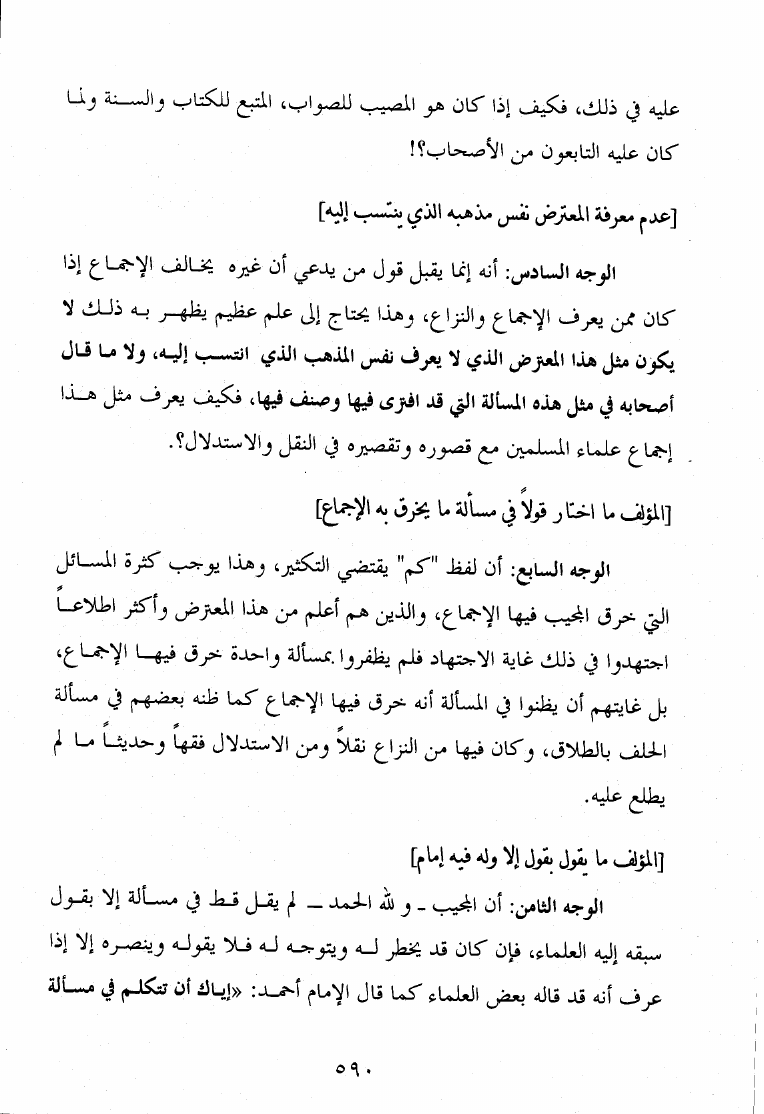 عليه في ذلك، فكيف إذا كان هو المصيب للصواب، المتبع للكتاب والسنة ولما
كان عليه التابعون من الأصحاب؟!
[عدم معرفة المعترض نفس مذهبه الذي ينتسب إليه]
الوجه السادس: أنه إنما يقبل قول من يدعي أن غيره يخالف الإجماع إذا
كان ممن يعرف الإجماع والنزاع، وهذا يحتاج إلى علم عظيم يظهر به ذلك لا
يكون مثل هذا المعترض الذي لا يعرف نفس المذهب الذي انتسب إليه، ولا ما قال
أصحابه في مثل هذه المسألة التي قد افترى فيها وصنف فيها، فكيف يعرف مثل هذا
إجماع علماء المسلمين مع قصوره وتقصيره في النقل والاستدلال؟.
[المؤلف ما اختار قولاً في مسألة ما يخرق به الإجماع]
الوجه السابع: أن لفظ "كم" يقتضي التكثير، وهذا يوجب كثرة المسائل
التي خرق المجيب فيها الإجماع، والذين هم أعلم من هذا المعترض وأكثر اطلاعاً
اجتهدوا في ذلك غاية الاجتهاد فلم يظفروا بمسألة واحدة خرق فيها الإجماع،
بل غايتهم أن يظنوا في المسألة أنه خرق فيها الإجماع كما ظنه بعضهم في مسألة
الحلف بالطلاق، وكان فيها من النزاع نقلاً ومن الاستدلال فقهاً وحديثاً ما لم
يطلع عليه.
[المؤلف ما يقول بقول إلا وله فيه إمام]
الوجه الثامن: أن المجيب - و لله الحمد - لم يقل قط في مسألة إلا بقول
سبقه إليه العلماء، فإن كان قد يخطر له ويتوجه له فلا يقوله وينصره إلا إذا
عرف أنه قد قاله بعض العلماء كما قال الإمام أحمد: «إياك أن تتكلم في مسألة
٥٩٠